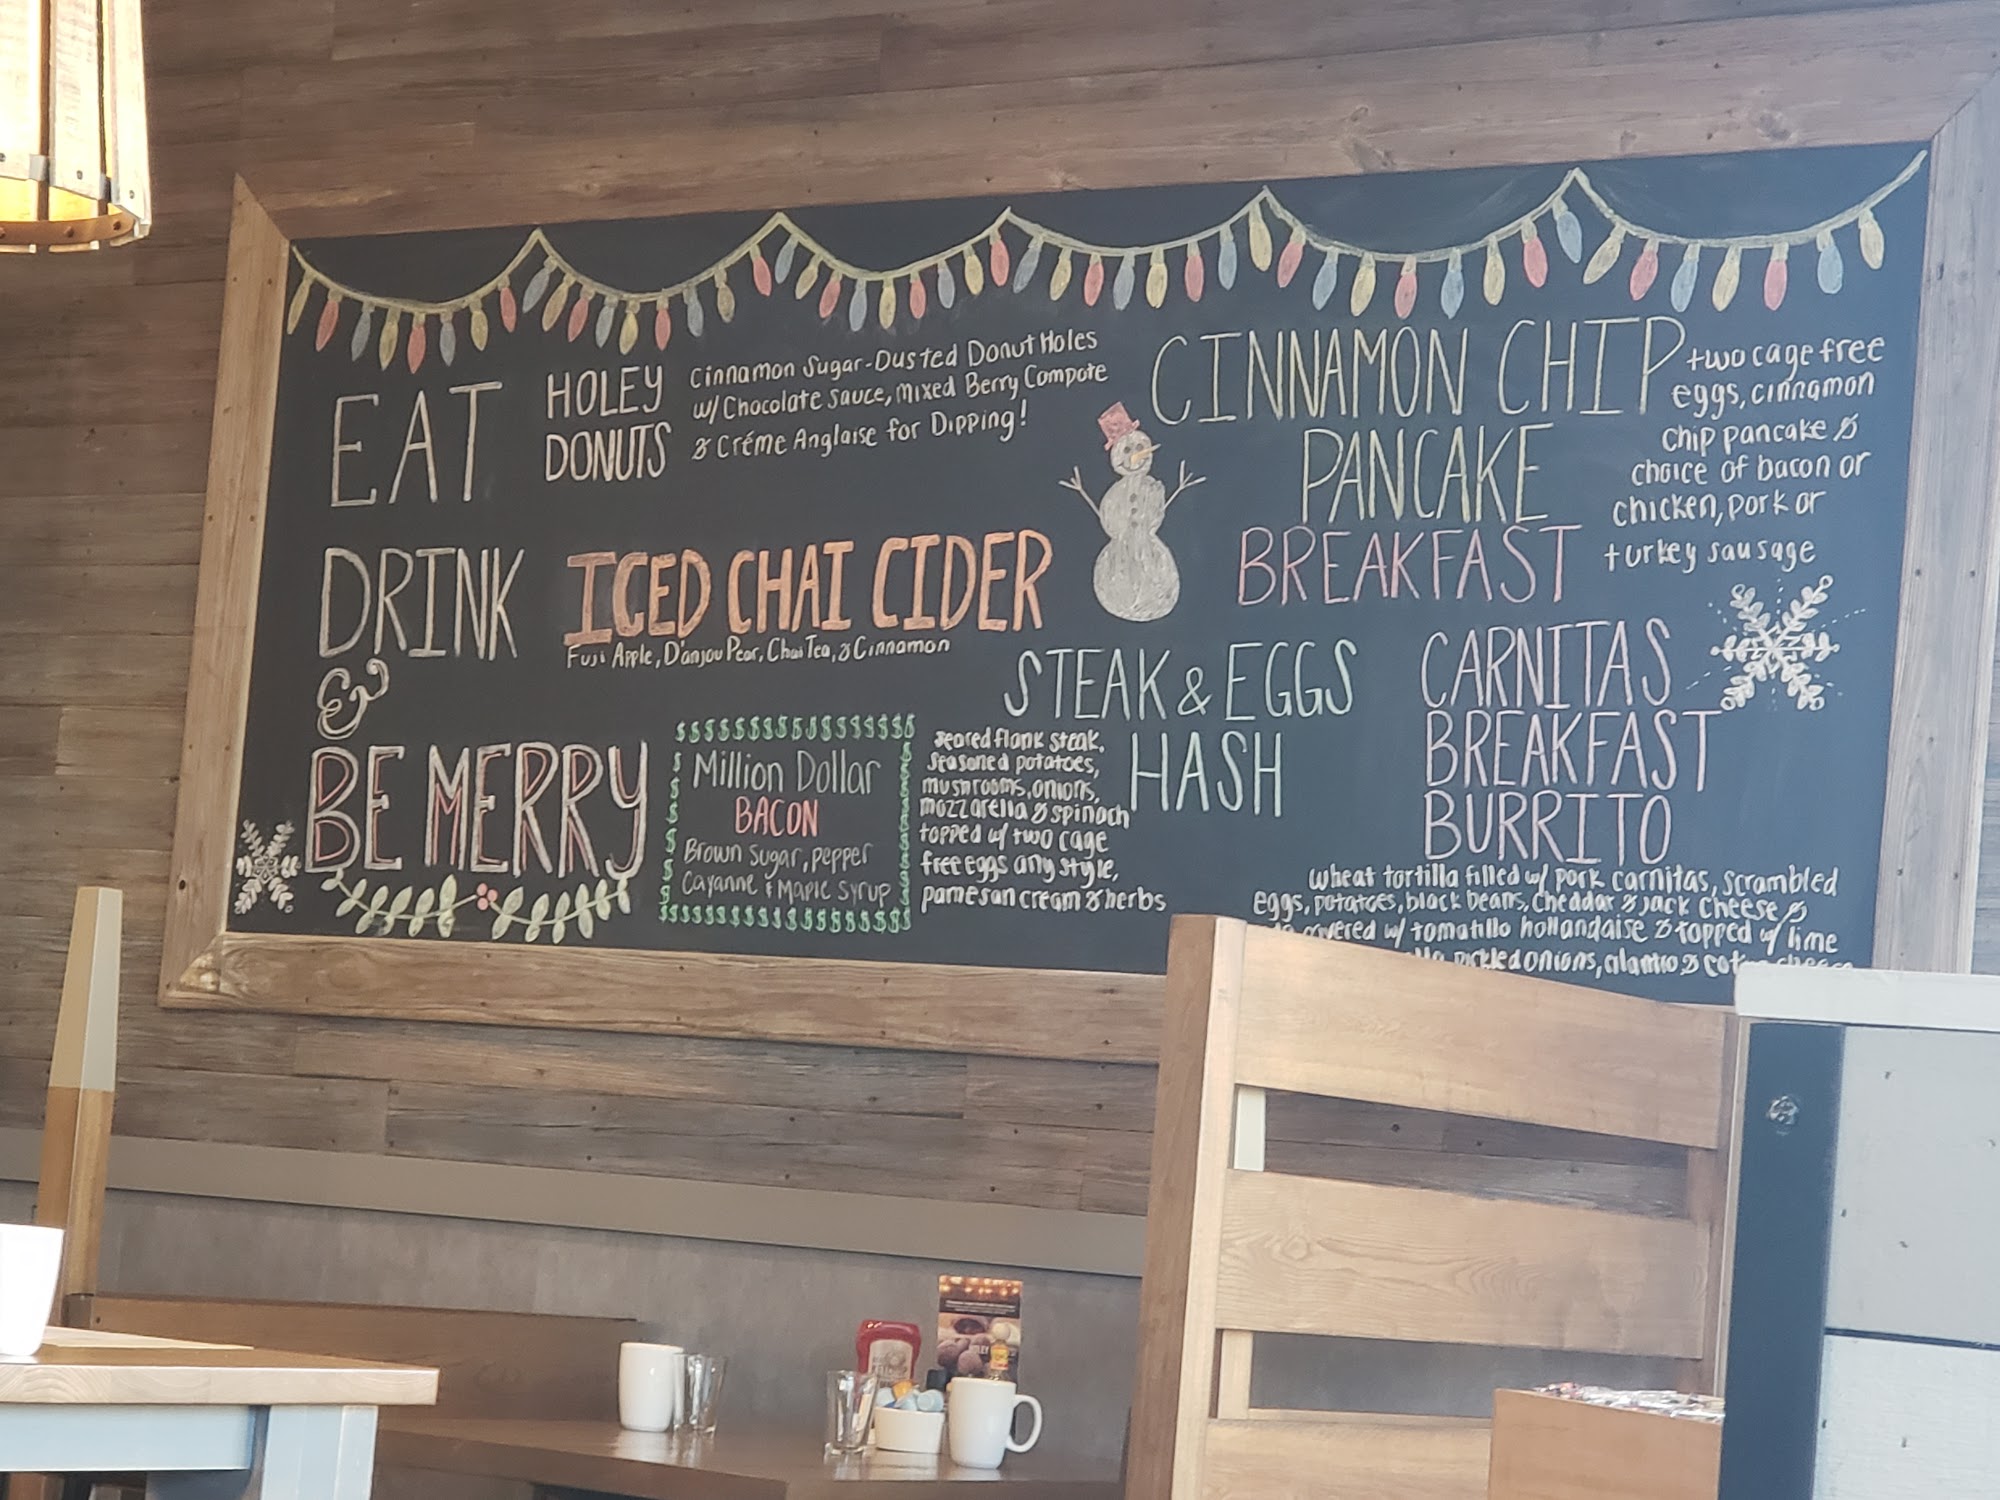 EAT
DRINK
&
BE MERRY
HOLEY
DONUTS
Cinnamon Sugar-Dusted Donut Holes
w/ Chocolate Sauce, Mixed Berry Compote
& Créme Anglaise for Dipping!
ICED CHAI CIDER
Fuji Apple, D'anjou Pear, Chai Tea, & Cinnamon
$$$$$$$$$$$$$$$$
Million Dollar
BACON
Brown Sugar, Pepper
Cayanne & Maple Syrup
$$$$$$$$$$$$$$$$$
CINNAMON CHIP
PANCAKE
BREAKFAST
two cage free
eggs, cinnamon
chip pancake &
choice of bacon or
chicken, pork or
turkey sausage
STEAK & EGGS
HASH
seared flank steak,
seasoned potatoes,
mushrooms, onions,
mozzarella & spinach
topped w/ two cage
free eggs any style,
parmesan cream & herbs
CARNITAS
BREAKFAST
BURRITO
wheat tortilla filled w/ pork carnitas, scrambled
eggs, potatoes, black beans, cheddar & jack cheese &
covered w/ tomatillo hollandaise & topped w/ lime
pickled onions, cilantro &